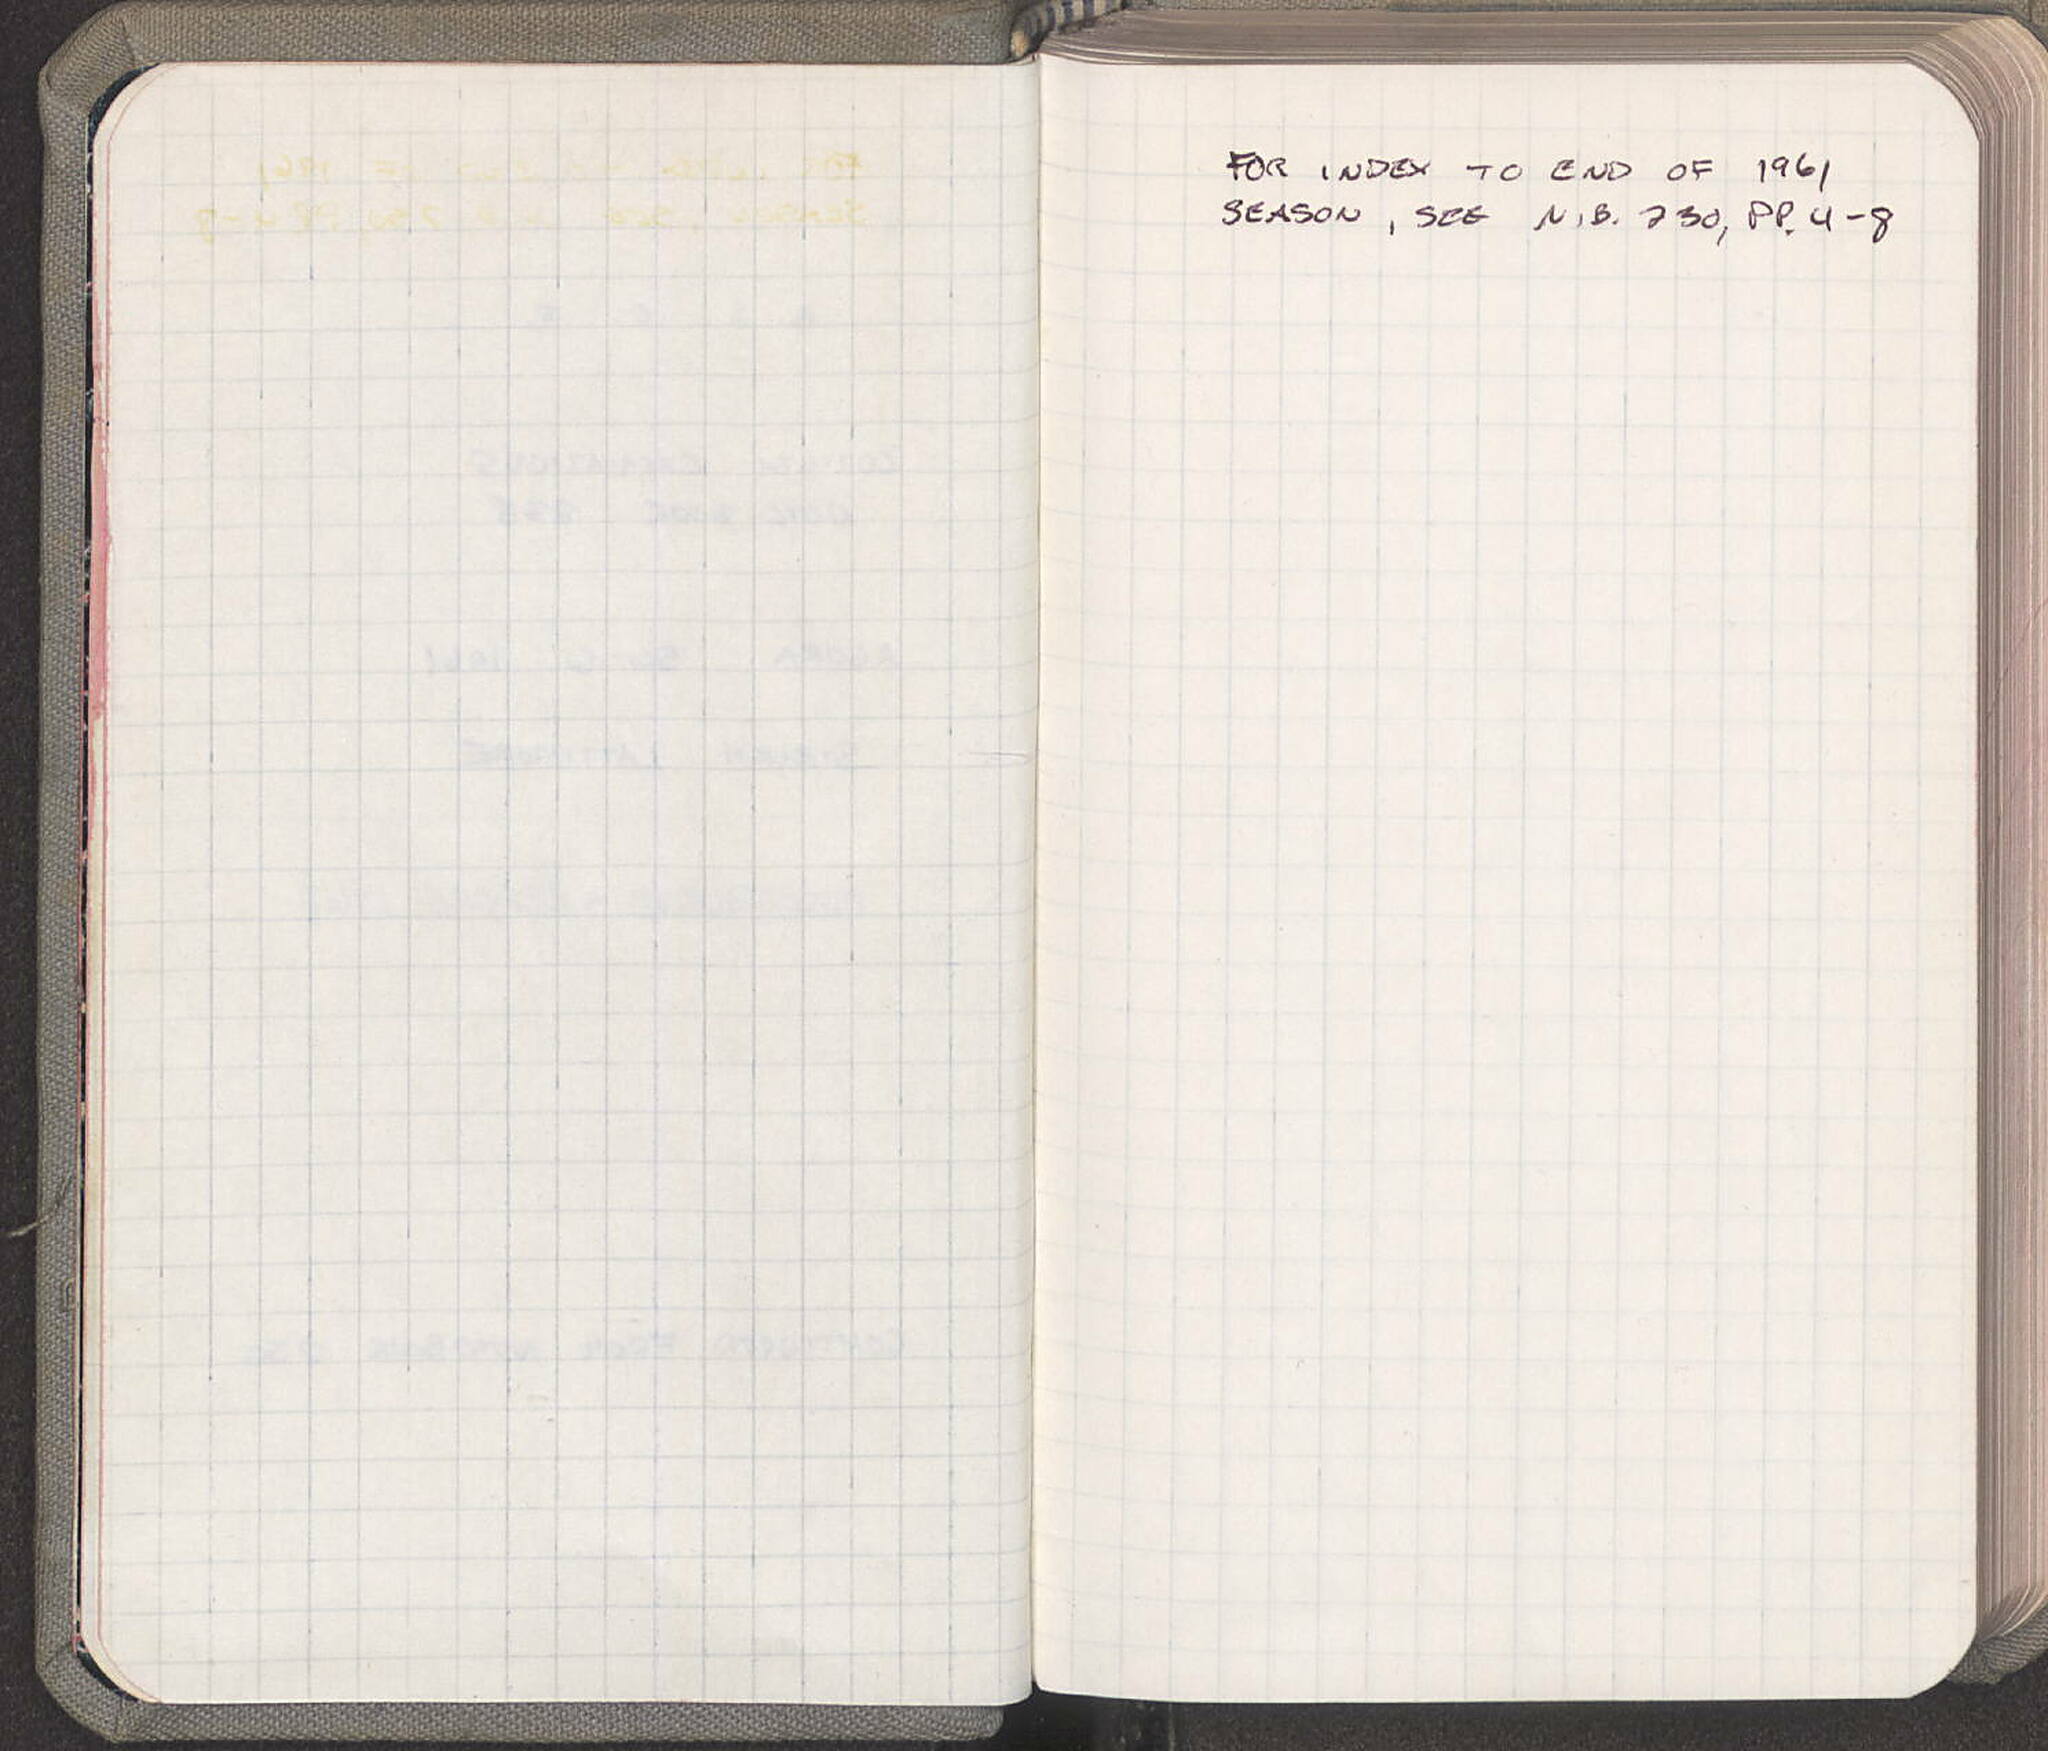 FOR INDEX TO END OF 1961
SEASON, SEE N.B. 230, PP. 4-8